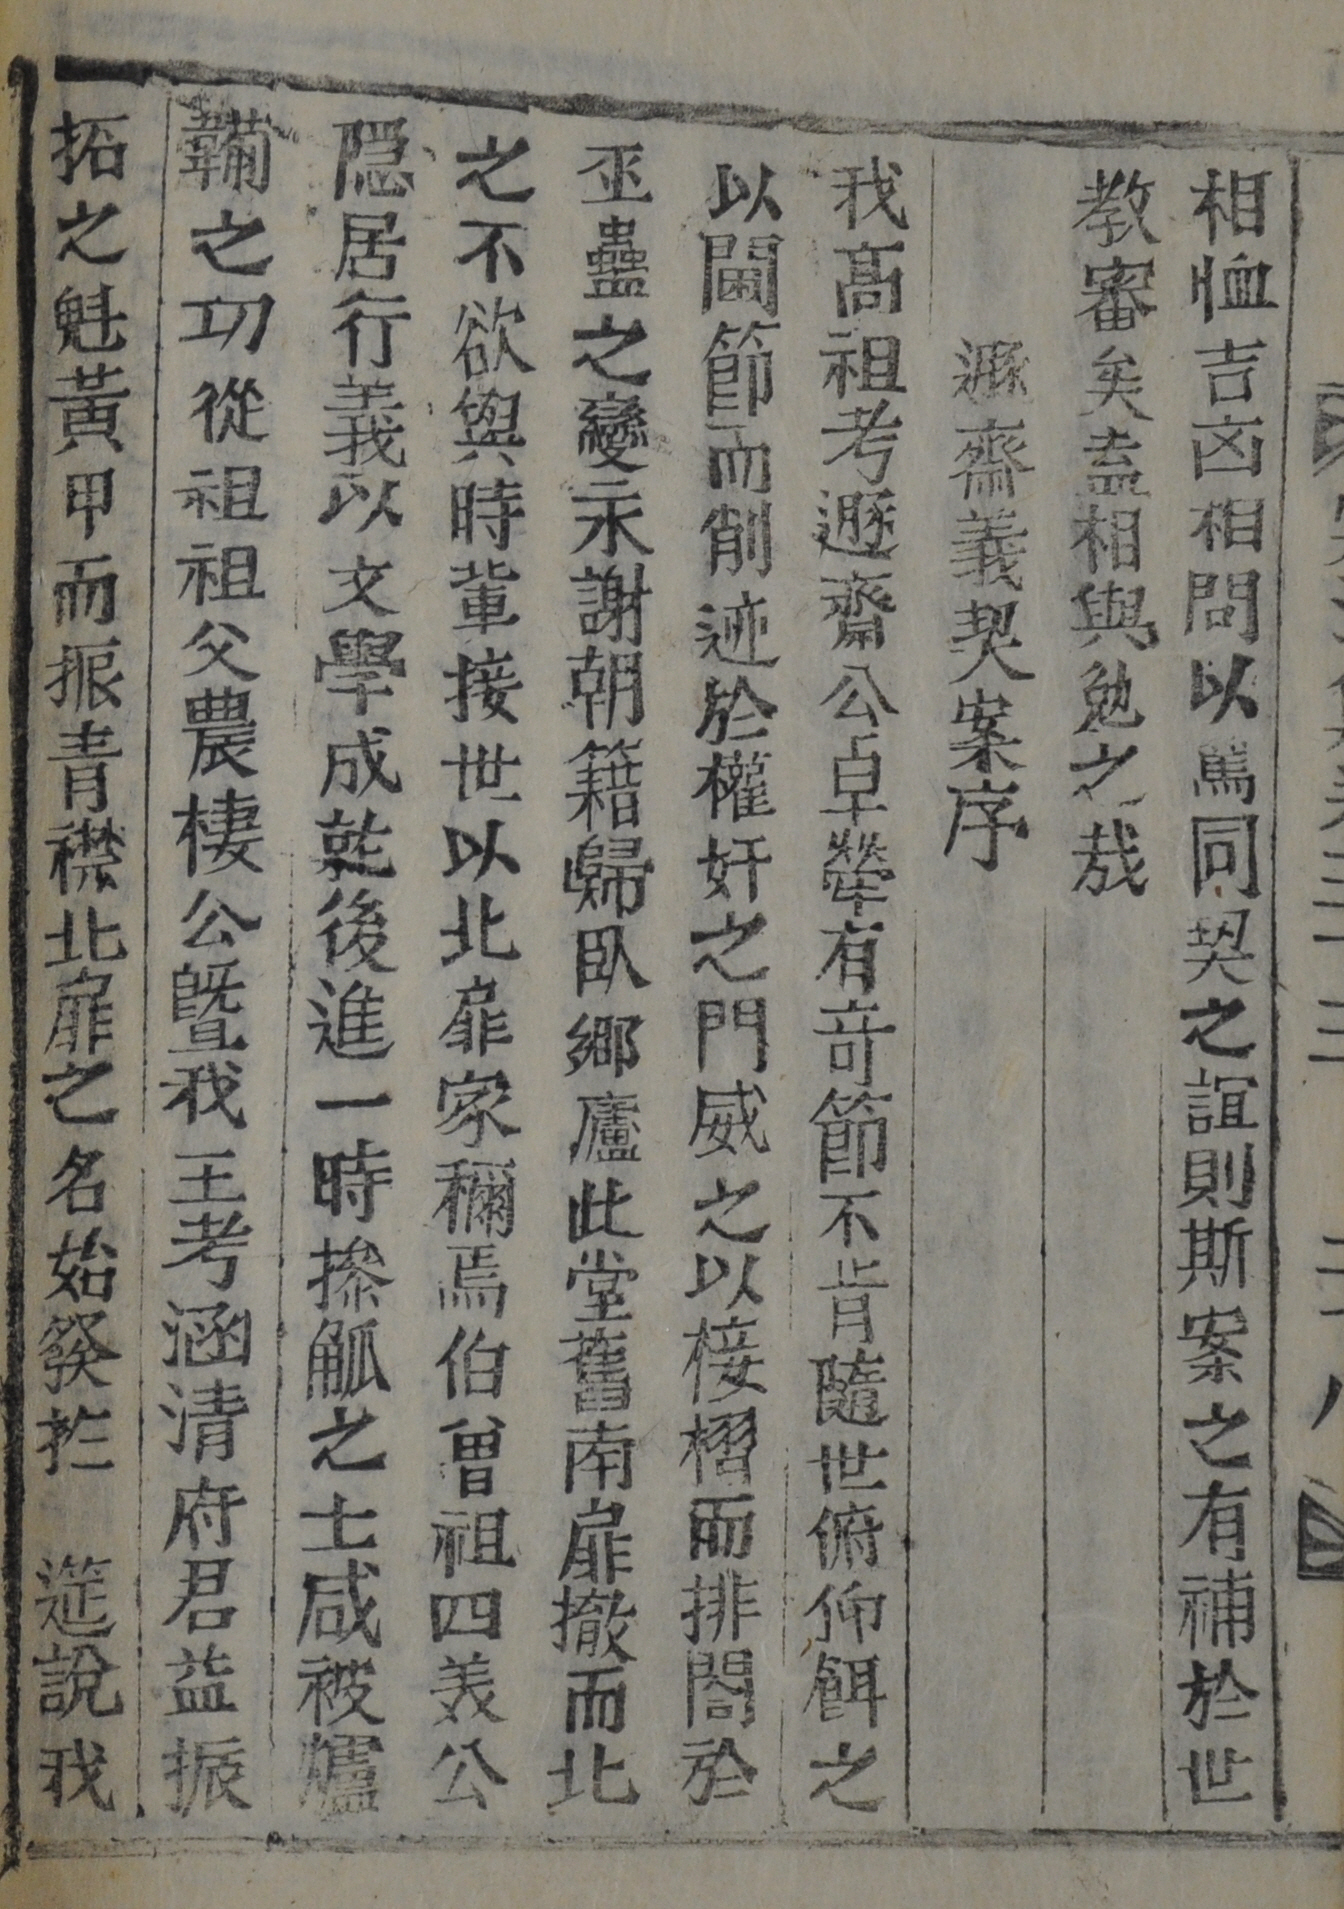 相恤吉凶相問以篤同契之誼則斯案之有補於世
教審矣盍相與勉之哉
遯齋義契案序
我高祖考遯齋公卓犖有奇節不肯隨世俯仰餌之
以閫節而削迹於權奸之門威之以椄槢而排閤於
巫蠱之變永謝朝籍歸臥鄉廬此堂舊南扉撤而北
之不欲與時輩接世以北扉家稱焉伯曾祖四美公
隱居行義以文學成就後進一時摻觚之士咸被爐
韛之功從祖祖父農棲公曁我王考涵清府君益振
拓之魁黃甲而振青襟北扉之名始發於 筵說我